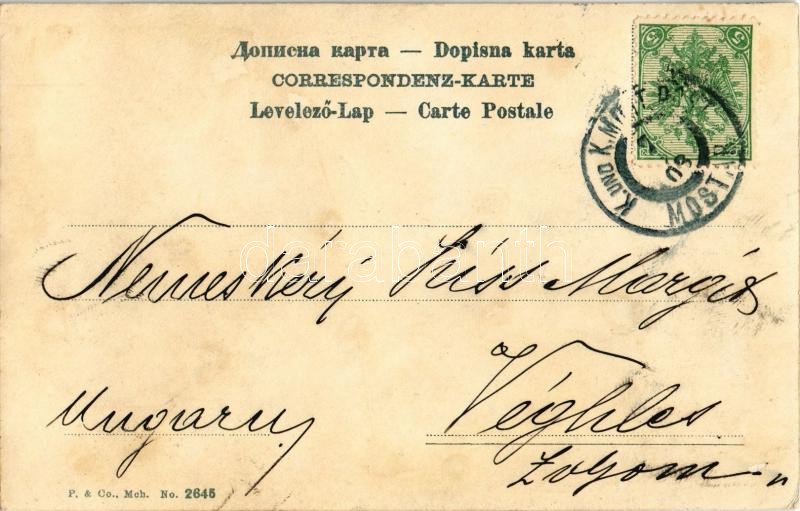 Дописна карта — Dopisna karta
CORRESPONDENZ-KARTE
Levelező-Lap — Carte Postale
5 5
K. UND K. MILIT. POST
03
MOSTAR
darabanth
Nemeskéri Kiss Margit
Ungarn
Véghles
Zolyom
P. & Co., Mch. No. 2645